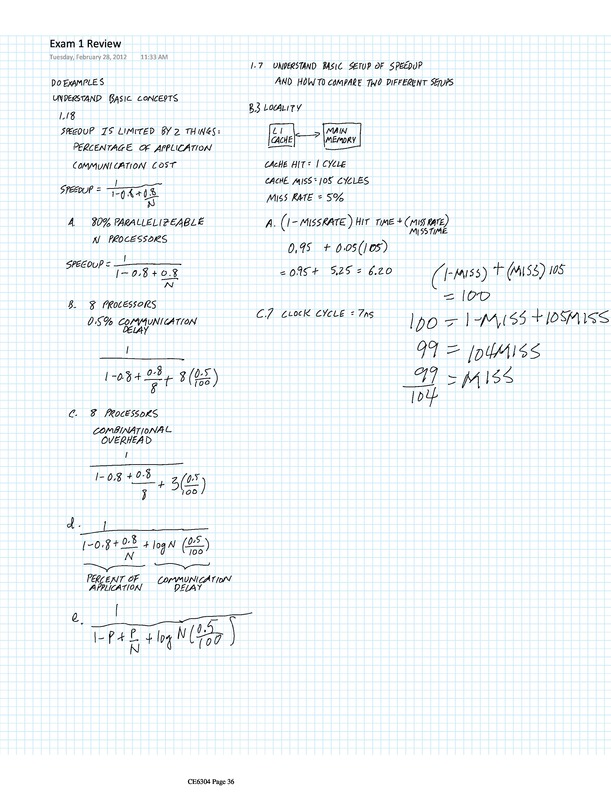 Exam 1 Review
Tuesday, February 28, 2012 11:33 AM
DO EXAMPLES
UNDERSTAND BASIC CONCEPTS
1.18
SPEEDUP IS LIMITED BY 2 THINGS:
PERCENTAGE OF APPLICATION
COMMUNICATION COST
SPEEDUP = 1
1-0.8+0.8
N
A. 80% PARALLELIZEABLE
N PROCESSORS
SPEEDUP = 1
1-0.8+0.8
N
B. 8 PROCESSORS
0.5% COMMUNICATION
DELAY
1
1-0.8+0.8 + 8(0.5
8 100)
C. 8 PROCESSORS
COMBINATIONAL
OVERHEAD
1
1-0.8+0.8 + 3(0.5
8 100)
d. 1
1-0.8+0.8 + log N (0.5
N 100)
PERCENT OF COMMUNICATION
APPLICATION DELAY
e. 1
1-P+P + log N(0.5
N 100)
1.7 UNDERSTAND BASIC SETUP OF SPEEDUP
AND HOW TO COMPARE TWO DIFFERENT SETUPS
B.3 LOCALITY
L1 MAIN
CACHE MEMORY
CACHE HIT = 1 CYCLE
CACHE MISS = 105 CYCLES
MISS RATE = 5%
A. (1-MISSRATE) HIT TIME + (MISS RATE)
MISS TIME
0.95 + 0.05(105)
= 0.95 + 5.25 = 6.20
C.7 CLOCK CYCLE = 7ns
(1-MISS) + (MISS)105
= 100
100 = 1-MISS + 105MISS
99 = 104MISS
99 = MISS
104
CE6304 Page 36